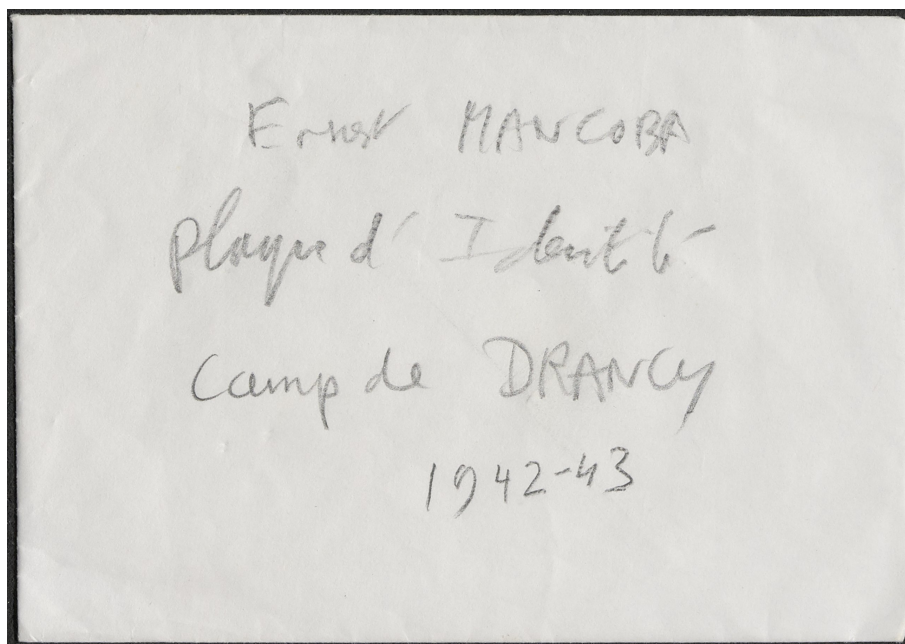 Ernest MANCOBA
plaque d'Identité
Camp de DRANCY
1942-43